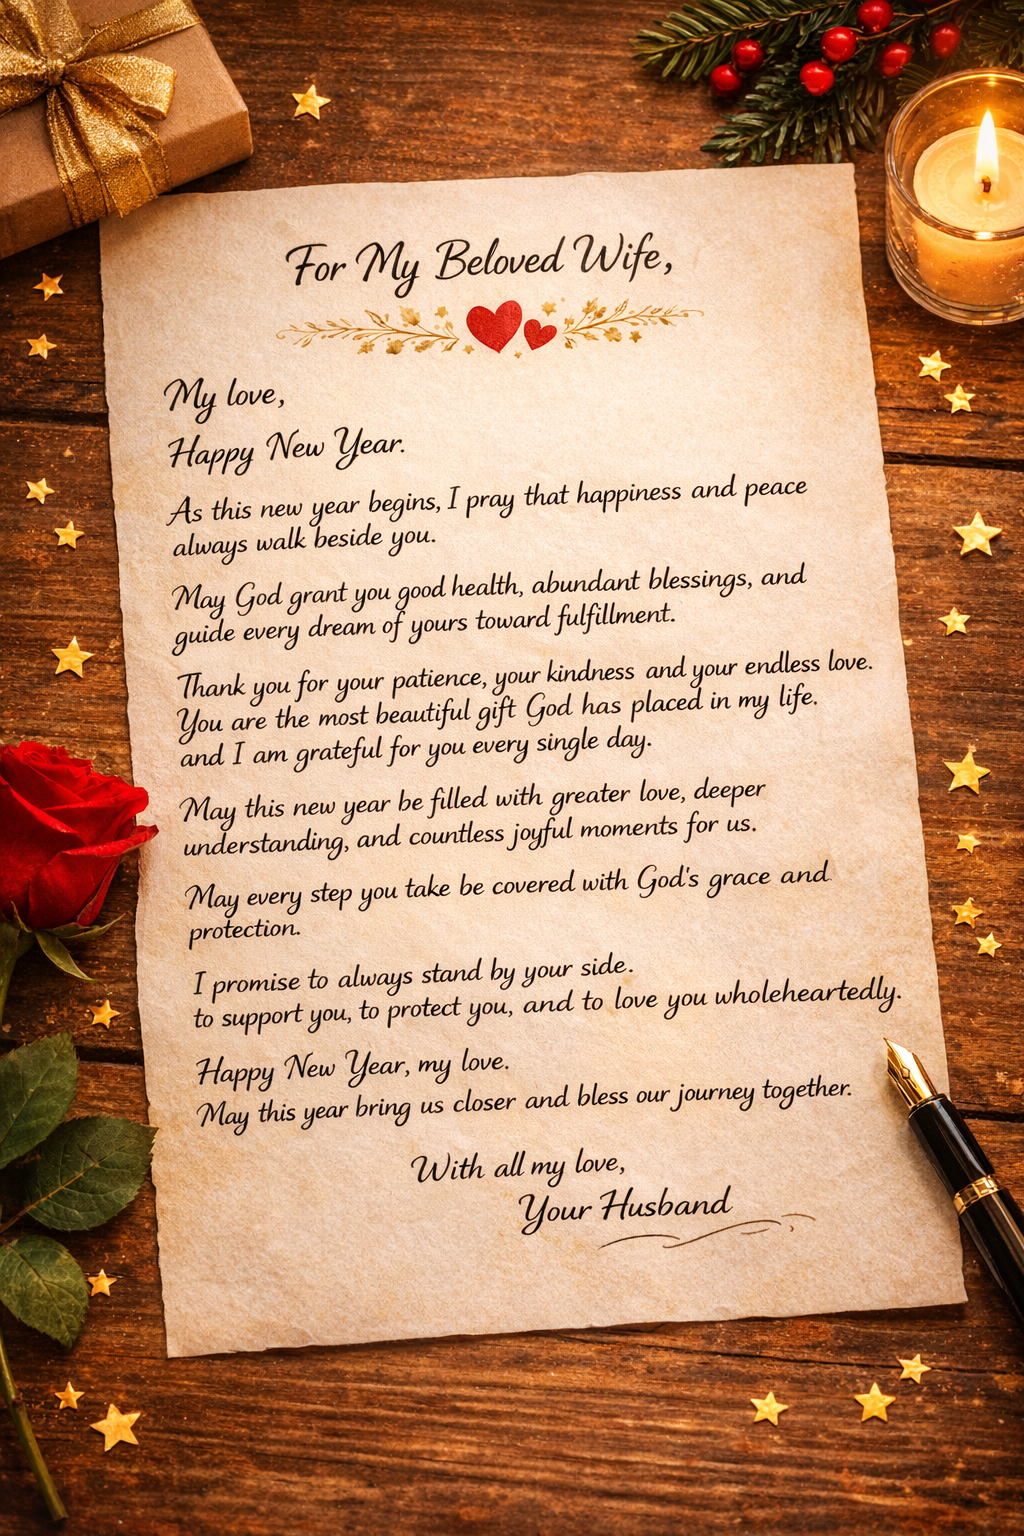 For My Beloved Wife,
My love,
Happy New Year.
As this new year begins, I pray that happiness and peace
always walk beside you.
May God grant you good health, abundant blessings, and
guide every dream of yours toward fulfillment.
Thank you for your patience, your kindness and your endless love.
You are the most beautiful gift God has placed in my life.
and I am grateful for you every single day.
May this new year be filled with greater love, deeper
understanding, and countless joyful moments for us.
May every step you take be covered with God's grace and
protection.
I promise to always stand by your side.
to support you, to protect you, and to love you wholeheartedly.
Happy New Year, my love.
May this year bring us closer and bless our journey together.
With all my love,
Your Husband